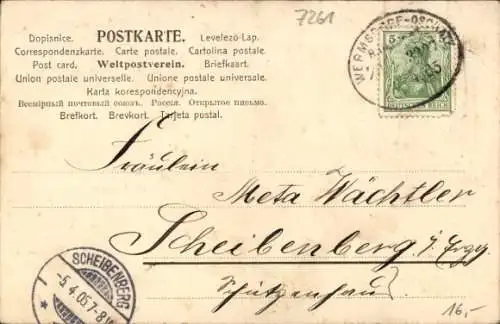 7261
Dopisnice. POSTKARTE. Levelező-Lap.
Correspondenzkarte. Carte postale. Cartolina postale.
Post card. Weltpostverein. Briefkaart.
Union postale universelle. Unione postale universale.
Karta korespondencyjna.
Всемірный почтовый союзъ. Россія. Открытое письмо.
Brefkort. Brevkort. Tarjeta postal.
WERMSDORF-OSCHATZ
5
DEUTSCHES REICH
Fräulein
Meta Wächtler
Scheibenberg i/ Erzg.
Schützenhaus
SCHEIBENBERG
-5.4.05.7-8
16,-